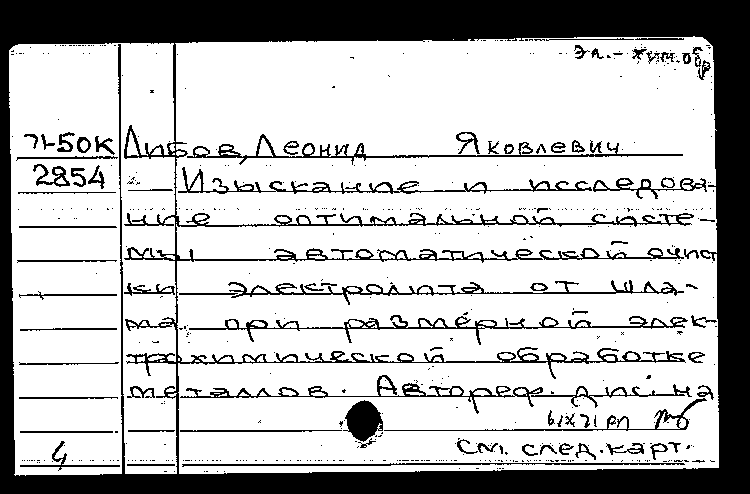 эл.-хим.обр
71-50К Либов, Леонид Яковлевич
2854 Изыскание и исследова-
ние оптимальной систе-
мы автоматической очист
ки электролита от шла-
ма при размерной элек-
трохимической обработке
металлов. Автореф. дис. на
6/IX 71 рп
4 см. след. карт.